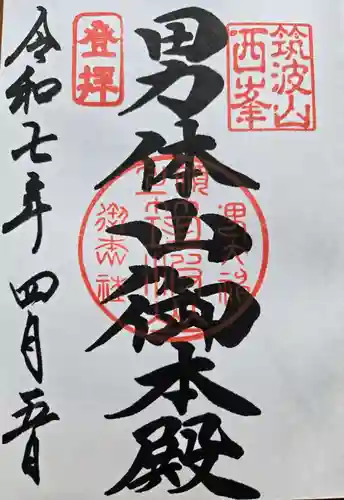 筑波山
西峯
男体山御本殿
登拝
令和七年四月五日